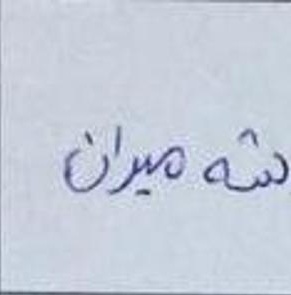 دشه میران